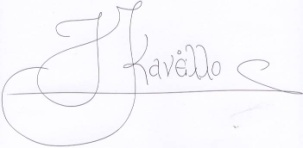 J Kavèllo